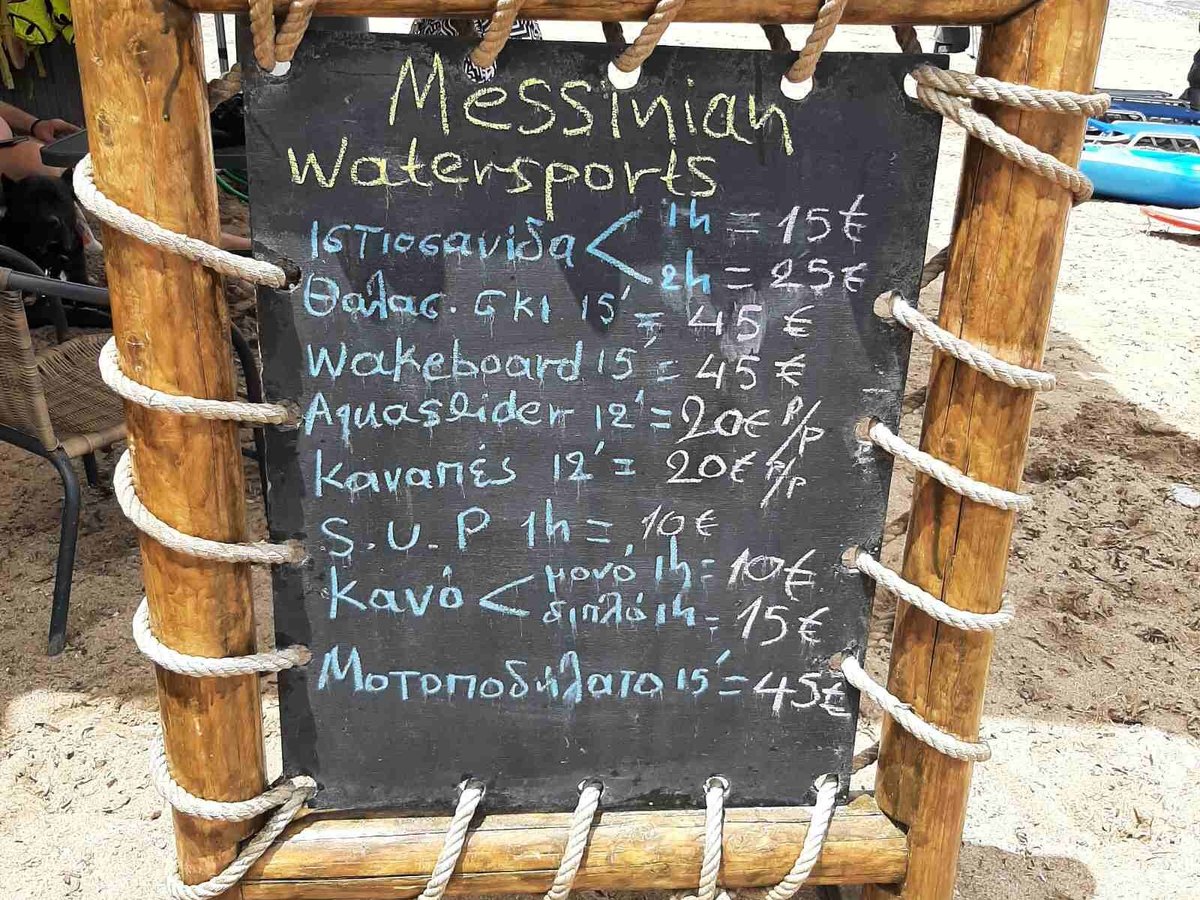 Messinian
Watersports
Ιστιοσανίδα < 1h = 15€
2h = 25€
Θαλασ. σκι 15' = 45€
Wakeboard 15' = 45€
Aquaslider 12' = 20€ P/P
Καναπές 12' = 20€ P/P
S.U.P 1h = 10€
Κανό < μονό 1h = 10€
διπλό 1h = 15€
Μοτοποδήλατο 15' = 45€